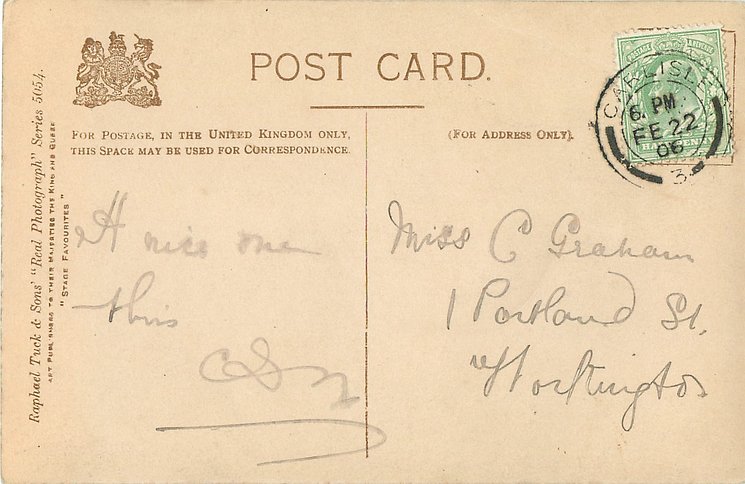 POST CARD.
FOR POSTAGE, IN THE UNITED KINGDOM ONLY,
THIS SPACE MAY BE USED FOR CORRESPONDENCE.
(FOR ADDRESS ONLY).
POSTAGE REVENUE
CARLISLE
6. PM
FE 22
06
3
Raphael Tuck & Sons' "Real Photograph" Series 5054.
ART PUBLISHERS TO THEIR MAJESTIES THE KING AND QUEEN
"STAGE FAVOURITES"
A nice one
this
Miss C Graham
1 Portland St.
Workington